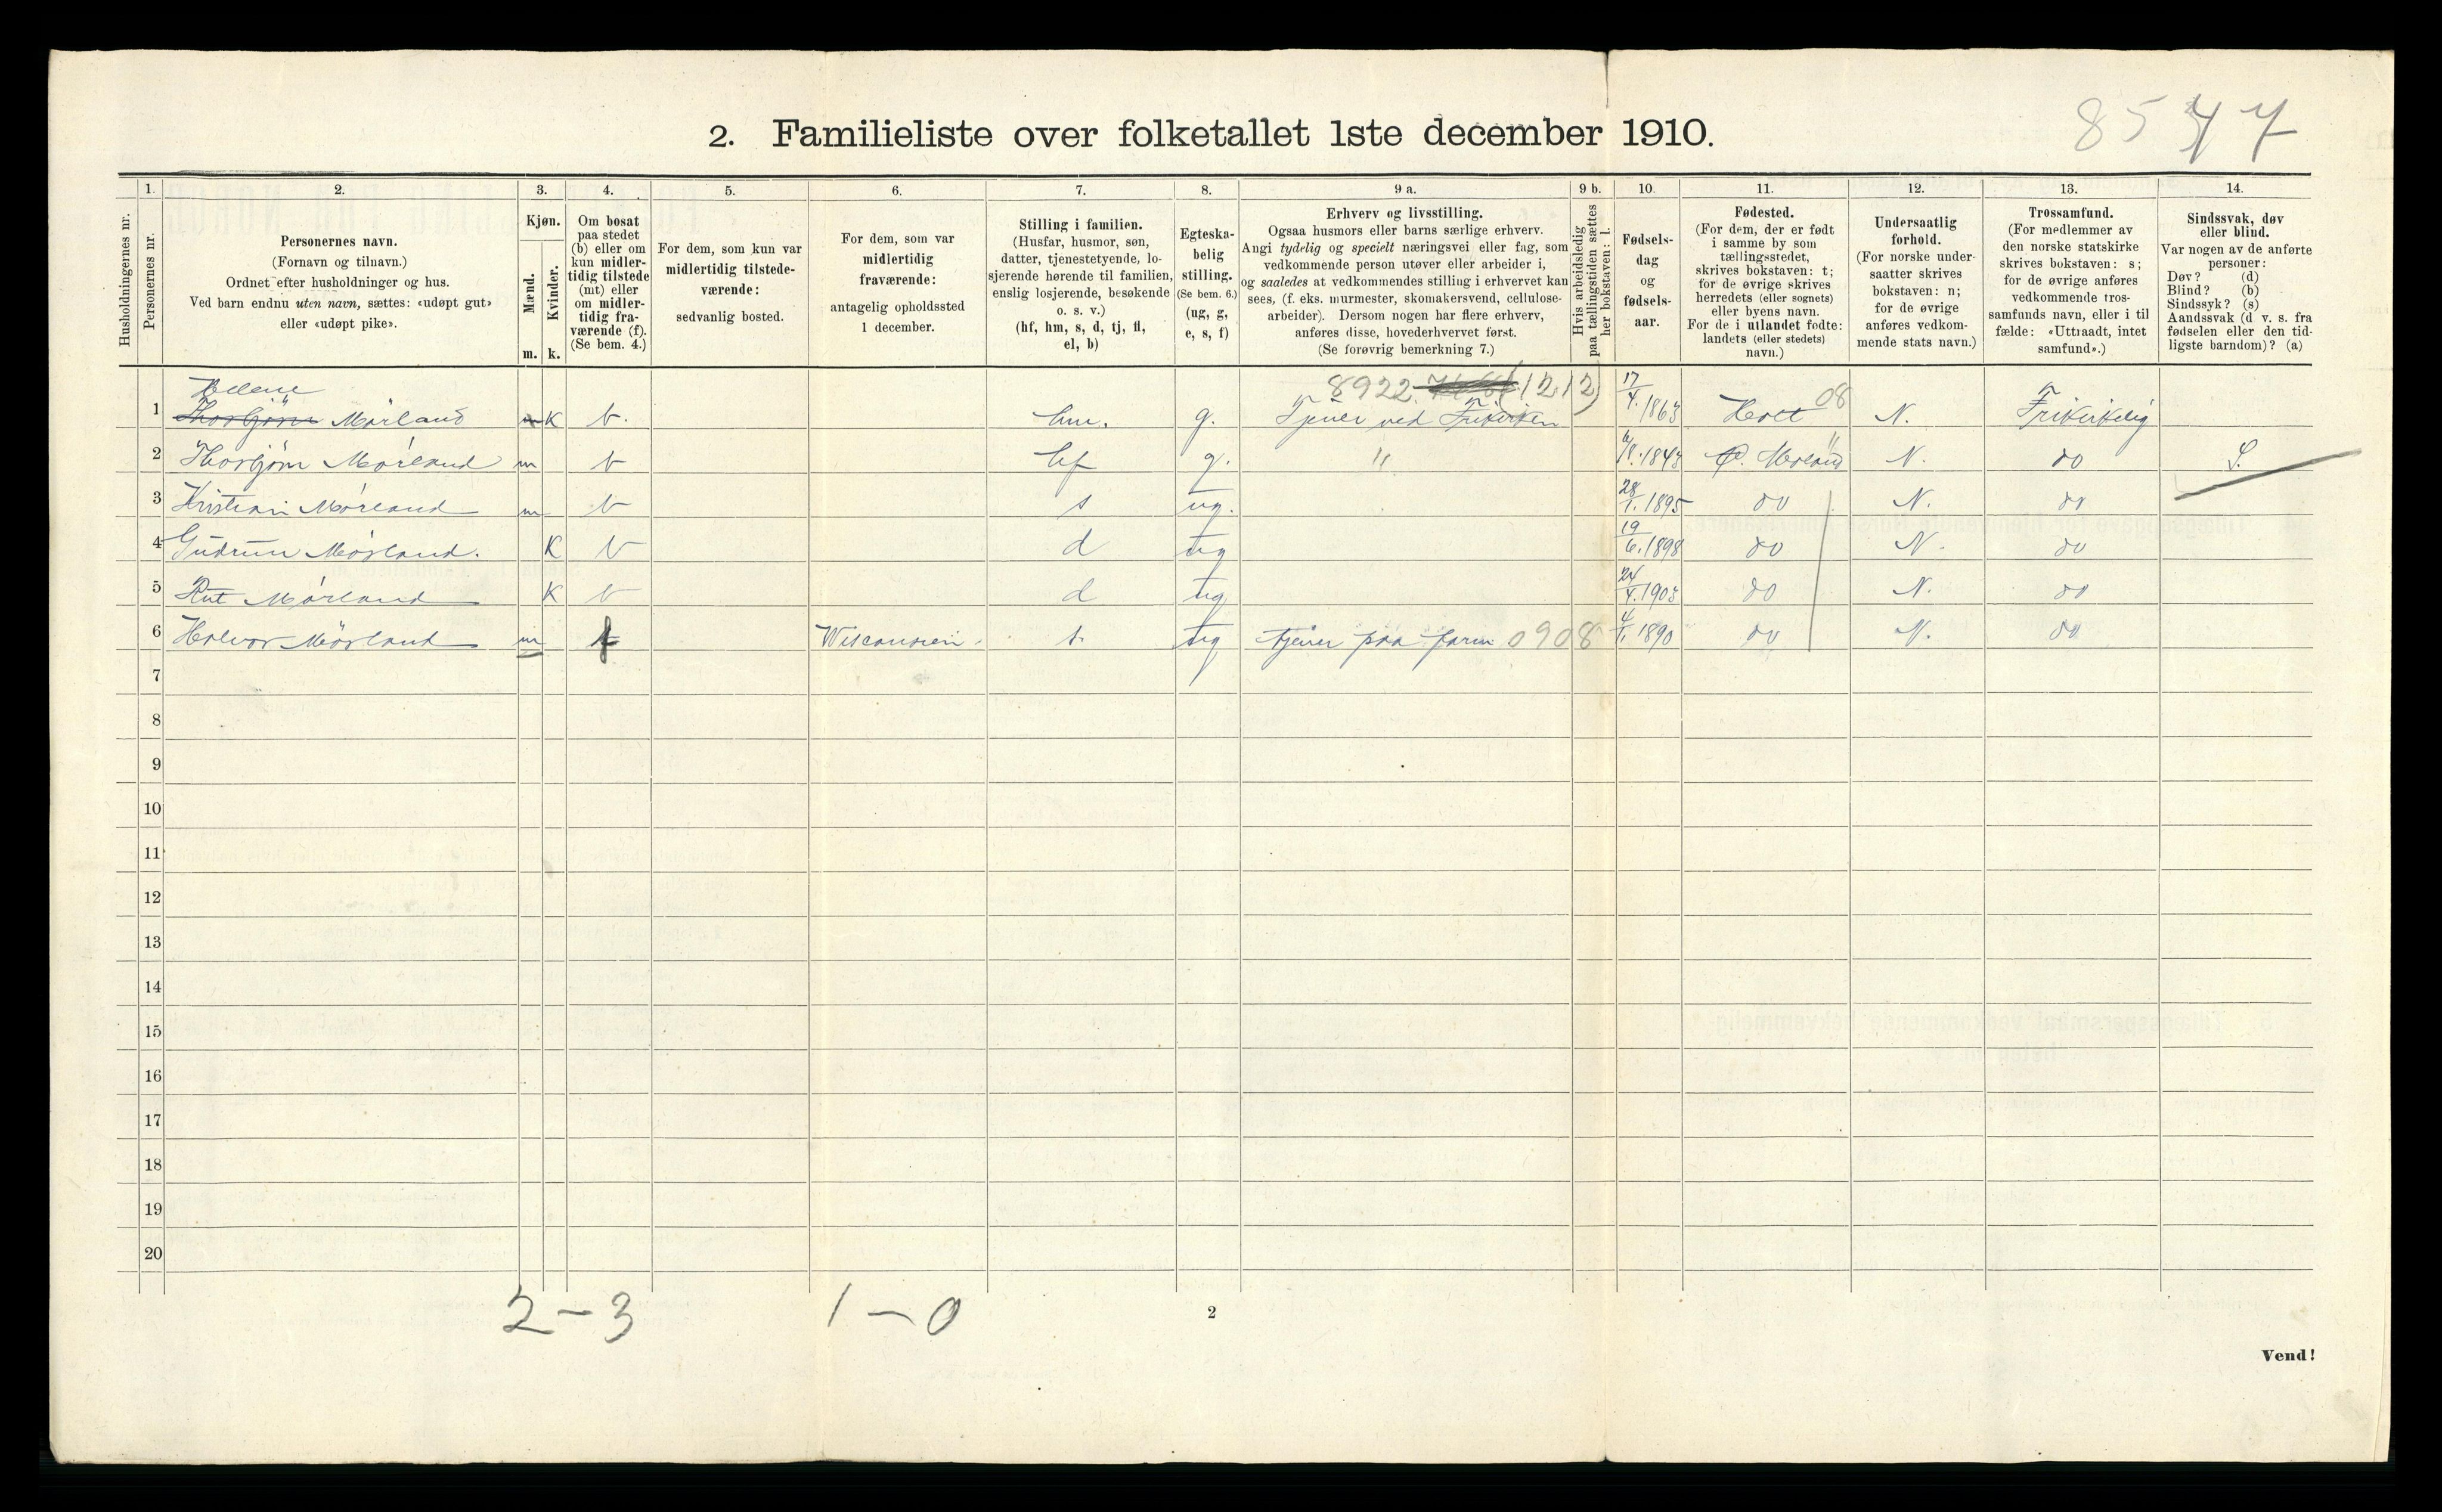 8547
2. Familieliste over folketallet 1ste december 1910.
Husholdningernes nr.
1. Personernes nr.
2. Personernes navn. (Fornavn og tilnavn.) Ordnet efter husholdninger og hus. Ved barn endnu uten navn, sættes: «udøpt gut» eller «udøpt pike».
3. Kjøn. Mænd. m. Kvinder. k.
4. Om bosat paa stedet (b) eller om kun midlertidig tilstede (mt) eller om midlertidig fraværende (f). (Se bem. 4.)
5. For dem, som kun var midlertidig tilstedeværende: sedvanlig bosted.
6. For dem, som var midlertidig fraværende: antagelig opholdssted 1 december.
7. Stilling i familien. (Husfar, husmor, søn, datter, tjenestetyende, losjerende hørende til familien, enslig losjerende, besøkende o. s. v.) (hf, hm, s, d, tj, fl, el, b)
8. Egteskabelig stilling. (Se bem. 6.) (ug, g, e, s, f)
9 a. Erhverv og livsstilling. Ogsaa husmors eller barns særlige erhverv. Angi tydelig og specielt næringsvei eller fag, som vedkommende person utøver eller arbeider i, og saaledes at vedkommendes stilling i erhvervet kan sees, (f. eks. murmester, skomakersvend, cellulosearbeider). Dersom nogen har flere erhverv, anføres disse, hovederhvervet først. (Se forøvrig bemerkning 7.)
9 b. Hvis arbeidsledig paa tællingstiden sættes her bokstaven: l.
10. Fødselsdag og fødselsaar.
11. Fødested. (For dem, der er født i samme by som tællingsstedet, skrives bokstaven: t; for de øvrige skrives herredets (eller sognets) eller byens navn. For de i utlandet fødte: landets (eller stedets) navn.)
12. Undersaatlig forhold. (For norske undersaatter skrives bokstaven: n; for de øvrige anføres vedkommende stats navn.)
13. Trossamfund. (For medlemmer av den norske statskirke skrives bokstaven: s; for de øvrige anføres vedkommende trossamfunds navn, eller i tilfælde: «Uttraadt, intet samfund».)
14. Sindssvak, døv eller blind. Var nogen av de anførte personer: Døv? (d) Blind? (b) Sindssyk? (s) Aandssvak (d. v. s. fra fødselen eller den tidligste barndom)? (a)
Helene 8922 (1212)
1 Thorbjørn Mørland m K b. hm. g. Tjener ved Frikirken 17/4. 1863 Holt 08 N. Frikirkelig
2 Thorbjørn Mørland m b hf g. " 1843 Ø. Moland " N. do S.
3 Kristian Mørland m b s ug. 28/1. 1895 do N. do
4 Gudrun Mørland. K b d ug 19/6. 1898 do N. do
5 Rut Mørland K b d ug 24/4. 1903 do N. do
6 Halvor Mørland m f Wisconsien. s. ug tjener paa farm 0908 4/1. 1890 do N. do
7
8
9
10
11
12
13
14
15
16
17
18
19
20
2 – 3 1 – 0
2
Vend!